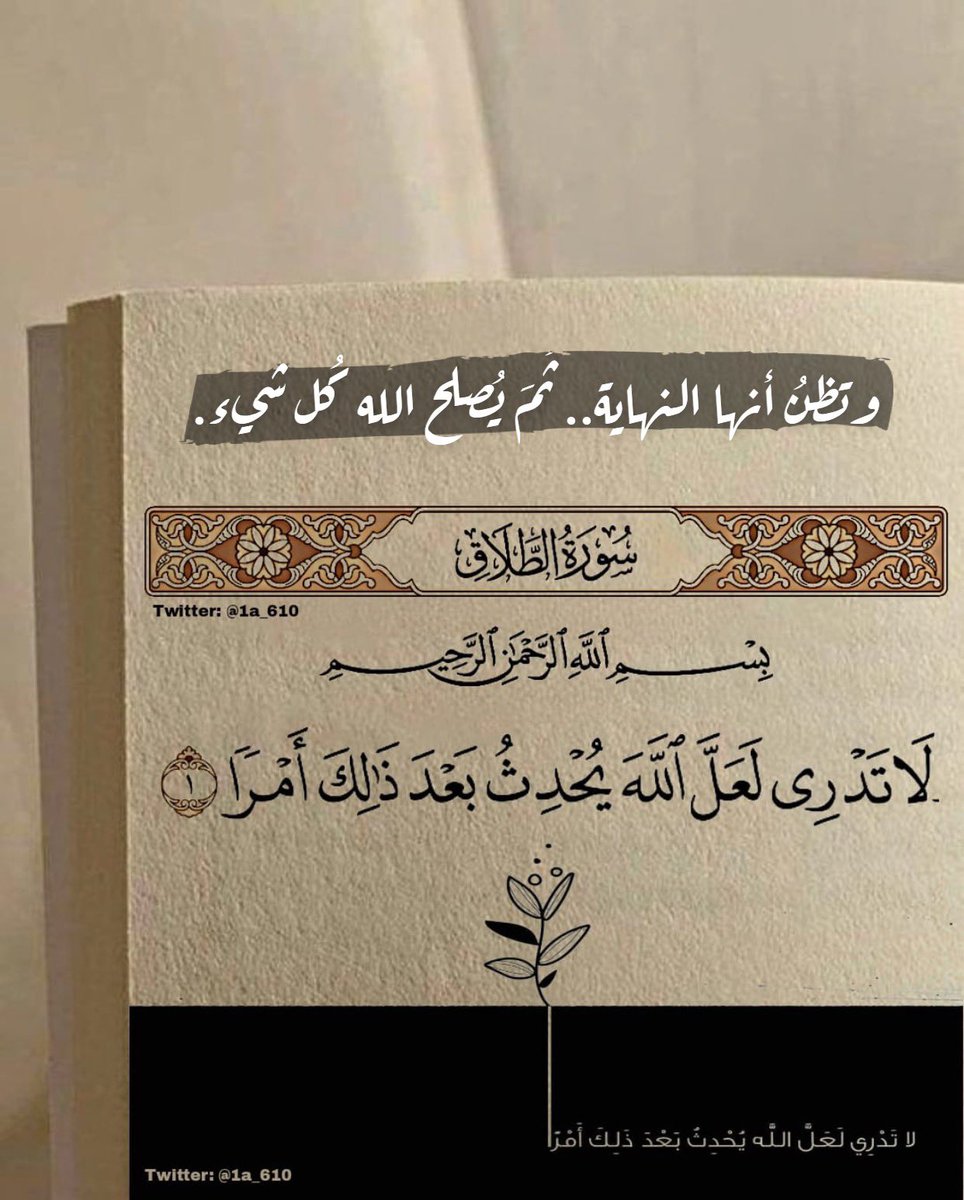 وتظنُ أنها النهاية.. ثمَ يُصلح الله كُل شيء.
سُورَةُ الطَّلَاقِ
Twitter: @1a_610
بِسْمِ ٱللَّهِ ٱلرَّحْمَٰنِ ٱلرَّحِيمِ
لَا تَدْرِى لَعَلَّ ٱللَّهَ يُحْدِثُ بَعْدَ ذَٰلِكَ أَمْرًا ١
لا تَدْرِي لَعَلَّ اللَّه يُحْدِثُ بَعْدَ ذَلِكَ أَمْرًا
Twitter: @1a_610